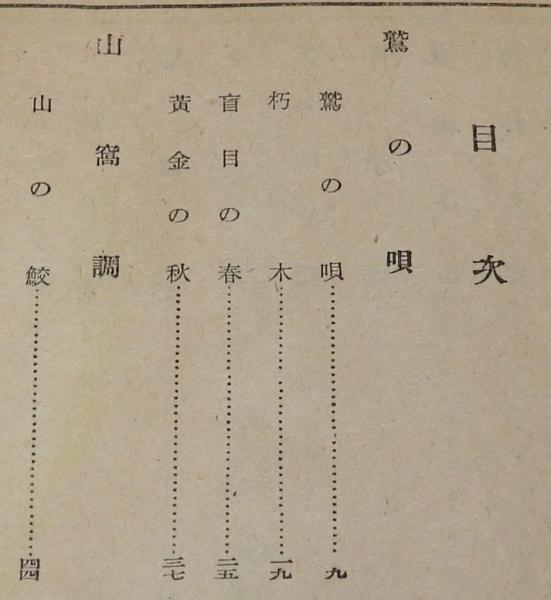 目次
鷲の唄
鷲の唄……九
朽木……一九
盲目の春……二五
黄金の秋……三七
山窩調
山の鮫……四四